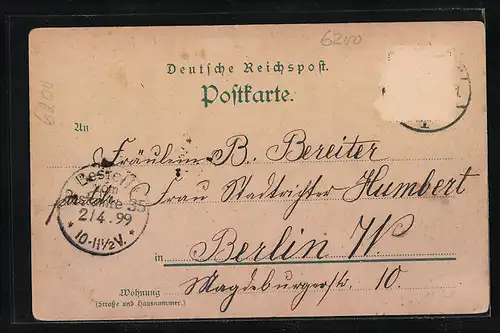 6200
6200
Deutsche Reichspost.
Postkarte.
An
Fräulein B. Bereiter
Frau Stadtrichter Humbert
Bestellt
vom
Postamte 35
2/4.99
* 10-11½V. *
in Berlin W.
Wohnung Magdeburgerstr. 10.
(Straße und Hausnummer.)